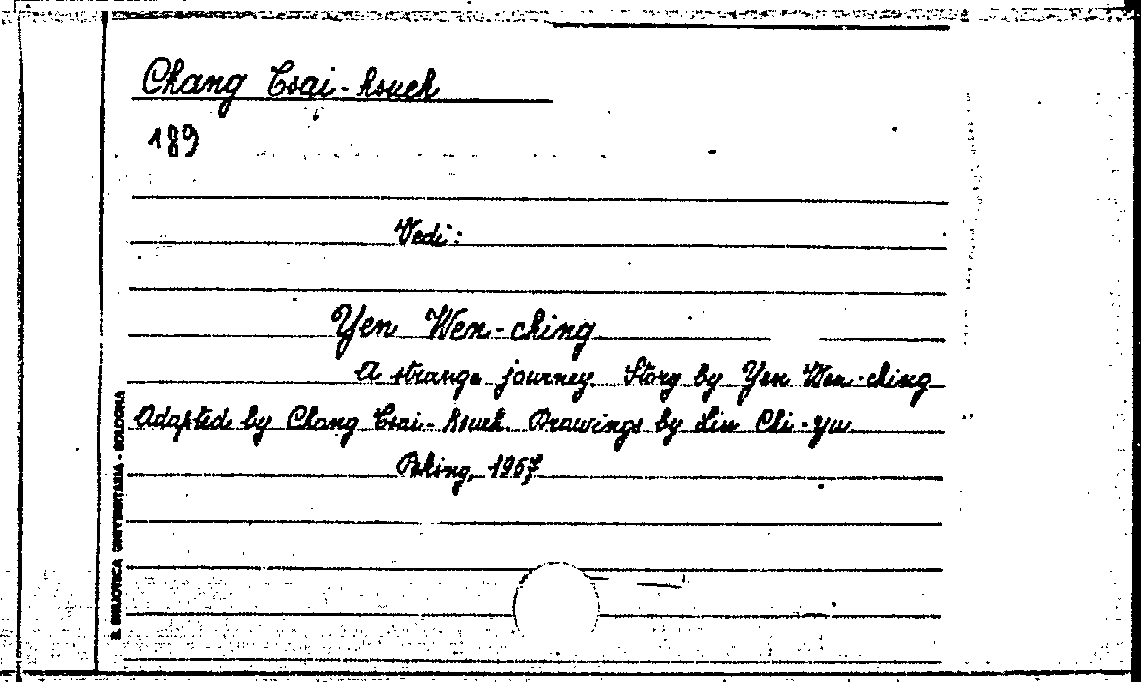 Chang Tsai-hsueh
189
Vedi:
Yen Wen-ching
A strange journey. Story by Yen Wen-ching
Adapted by Chang Tsai-hsueh. Drawings by Lin Chi-yu
Peking, 1957
R. BIBLIOTECA UNIVERSITARIA - BOLOGNA